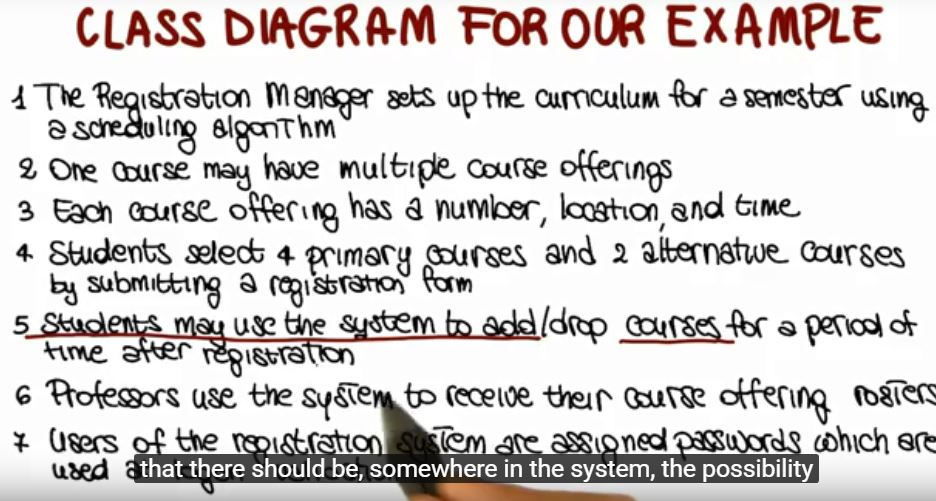 CLASS DIAGRAM FOR OUR EXAMPLE
1 The Registration Manager sets up the curriculum for a semester using
a scheduling algorithm
2 One course may have multiple course offerings
3 Each course offering has a number, location, and time
4 Students select 4 primary courses and 2 alternative courses
by submitting a registration form
5 Students may use the system to add/drop courses for a period of
time after registration
6 Professors use the system to receive their course offering rosters
7 Users of the registration system are assigned passwords which are
used
that there should be, somewhere in the system, the possibility